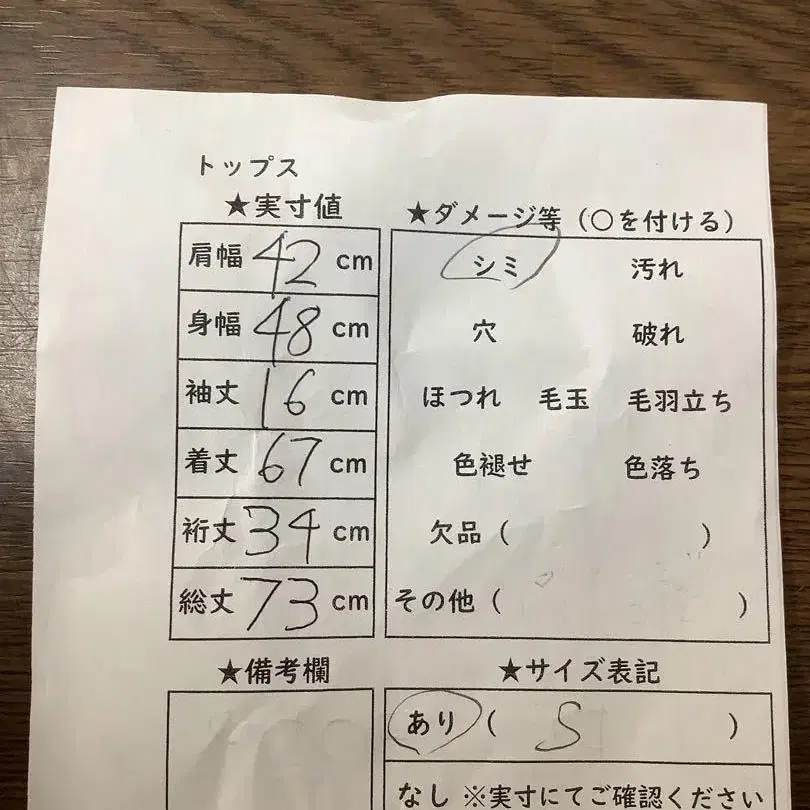 トップス
★実寸値
肩幅 42 cm
身幅 48 cm
袖丈 16 cm
着丈 67 cm
裄丈 34 cm
総丈 73 cm
★ダメージ等(○を付ける)
シミ 汚れ
穴 破れ
ほつれ 毛玉 毛羽立ち
色褪せ 色落ち
欠品( )
その他( )
★備考欄
★サイズ表記
あり( S )
なし ※実寸にてご確認ください